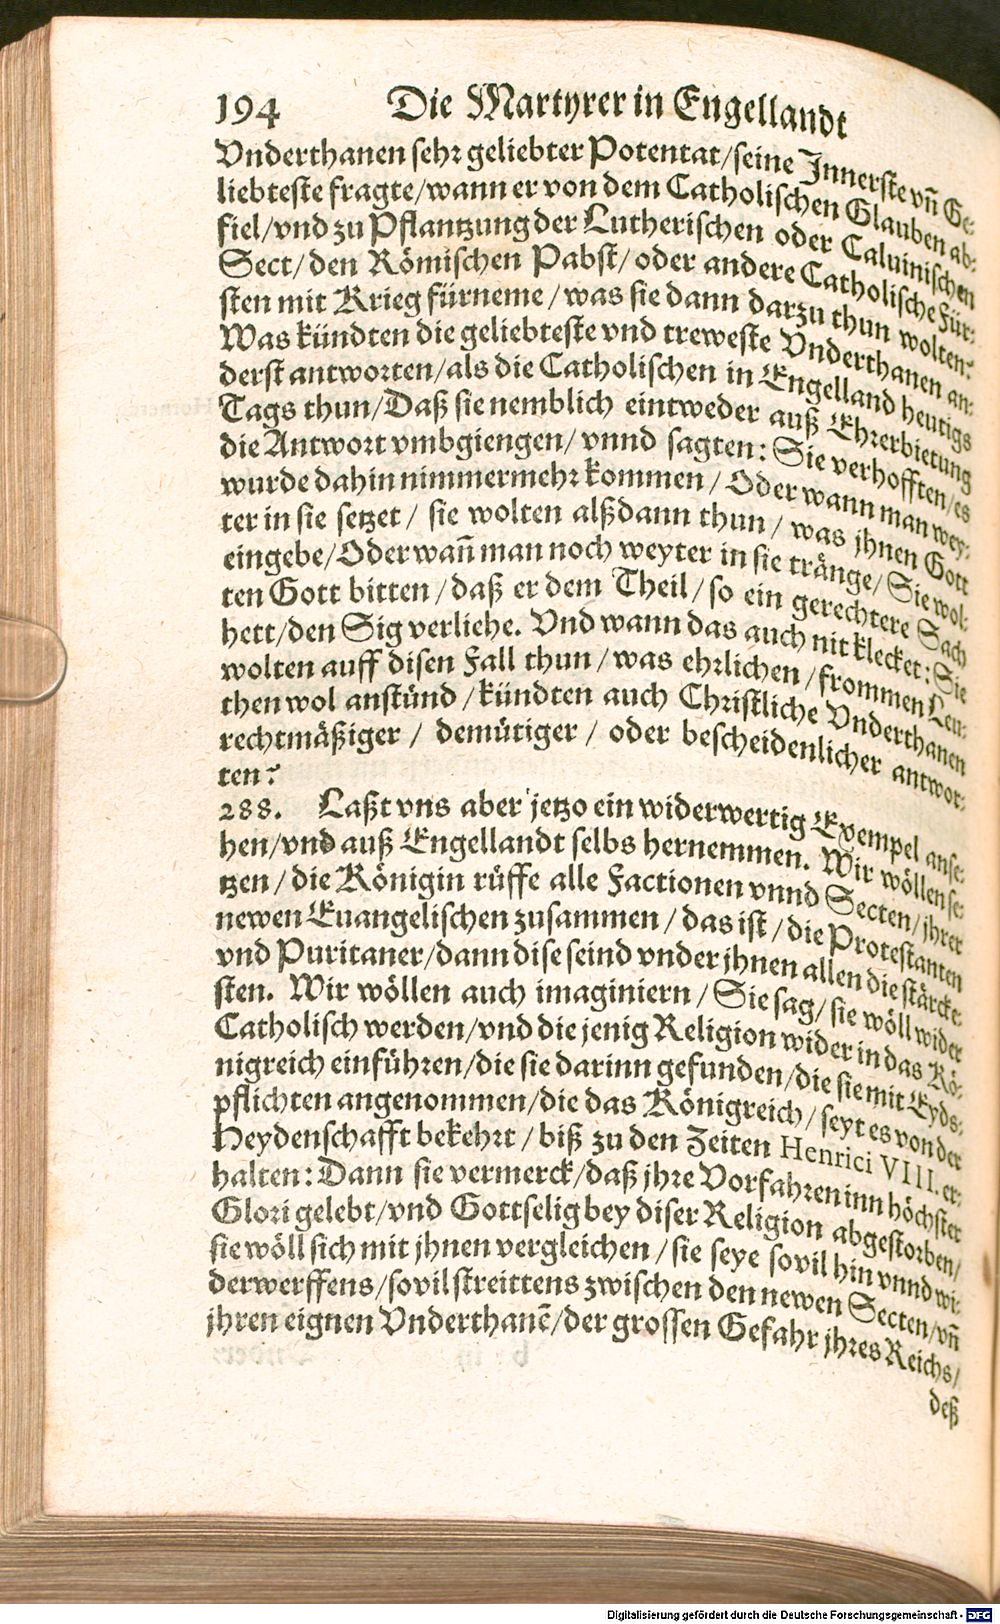 194 Die Martyrer in Engellandt
Vnderthanen sehr geliebter Potentat/seine Innerste vñ Ge-
liebteste fragte/wann er von dem Catholischen Glauben ab-
fiel/vnd zu Pflantzung der Lutherischen oder Caluinischen
Sect/den Römischen Pabst/oder andere Catholische Für-
sten mit Krieg fürneme/was sie dann darzu thun wolten?
Was kündten die geliebteste vnd treweste Vnderthanen an-
derst antworten/als die Catholischen in Engelland heutigs
Tags thun/Daß sie nemblich eintweder auß Ehrerbietung
die Antwort vmbgiengen/vnnd sagten: Sie verhofften/es
wurde dahin nimmermehr kommen/Oder wann man wey-
ter in sie setzet/ sie wolten alßdann thun/ was jhnen Gott
eingebe/Oder wañ man noch weyter in sie tränge/Sie wol-
ten Gott bitten/daß er dem Theil/so ein gerechtere Sach
hett/den Sig verliehe. Vnd wann das auch nit klecket: Sie
wolten auff disen Fall thun/was ehrlichen/frommen Leu-
then wol anstünd/kündten auch Christliche Vnderthanen
rechtmäßiger/ demütiger/ oder bescheidenlicher antwor-
ten?
288. Laßt vns aber jetzo ein widerwertig Exempel anse-
hen/vnd auß Engellandt selbs hernemmen. Wir wöllen se-
tzen/die Königin rüffe alle Factionen vnnd Secten/jhrer
newen Euangelischen zusammen/das ist/die Protestanten
vnd Puritaner/dann dise seind vnder jhnen allen die stärcke-
sten. Wir wöllen auch imaginiern/Sie sag/sie wöll wider
Catholisch werden/vnd die jenig Religion wider in das Kö-
nigreich einführen/die sie darinn gefunden/die sie mit Eyds-
pflichten angenommen/die das Königreich/seyt es von der
Heydenschafft bekehrt/biß zu den Zeiten Henrici VIII. er-
halten: Dann sie vermerck/daß jhre Vorfahren inn höchster
Glori gelebt/vnd Gottselig bey diser Religion abgestorben/
sie wöll sich mit jhnen vergleichen/sie seye sovil hin vnnd wi-
derwerffens/sovil streittens zwischen den newen Secten/vñ
jhren eignen Vnderthanẽ/der grossen Gefahr jhres Reichs/
deß
Digitalisierung gefördert durch die Deutsche Forschungsgemeinschaft - DFG